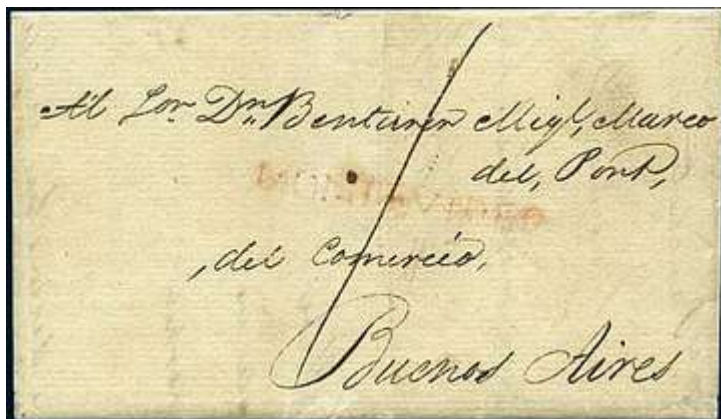 Al Sor. Dn. Bentura Migl. Marco
del, Pont,
,del Comercio,
Buenos Aires